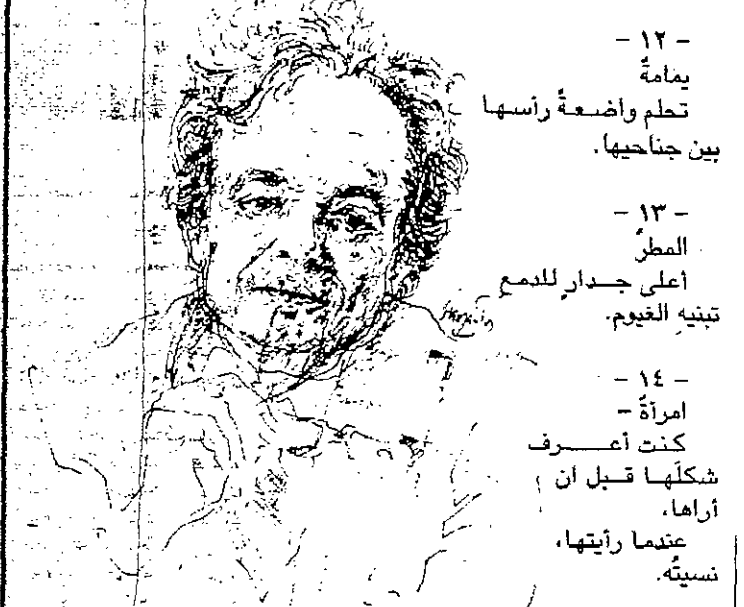 - ١٢ -
يمامةٌ
تحلم واضعةً رأسها
بين جناحيها.
- ١٣ -
المطرُ
أعلى جدارٍ للدمع
تبنيه الغيوم.
- ١٤ -
امرأةٌ -
كنت أعرف
شكلَها قبل ان
أراها،
عندما رأيتها،
نسيتُه.